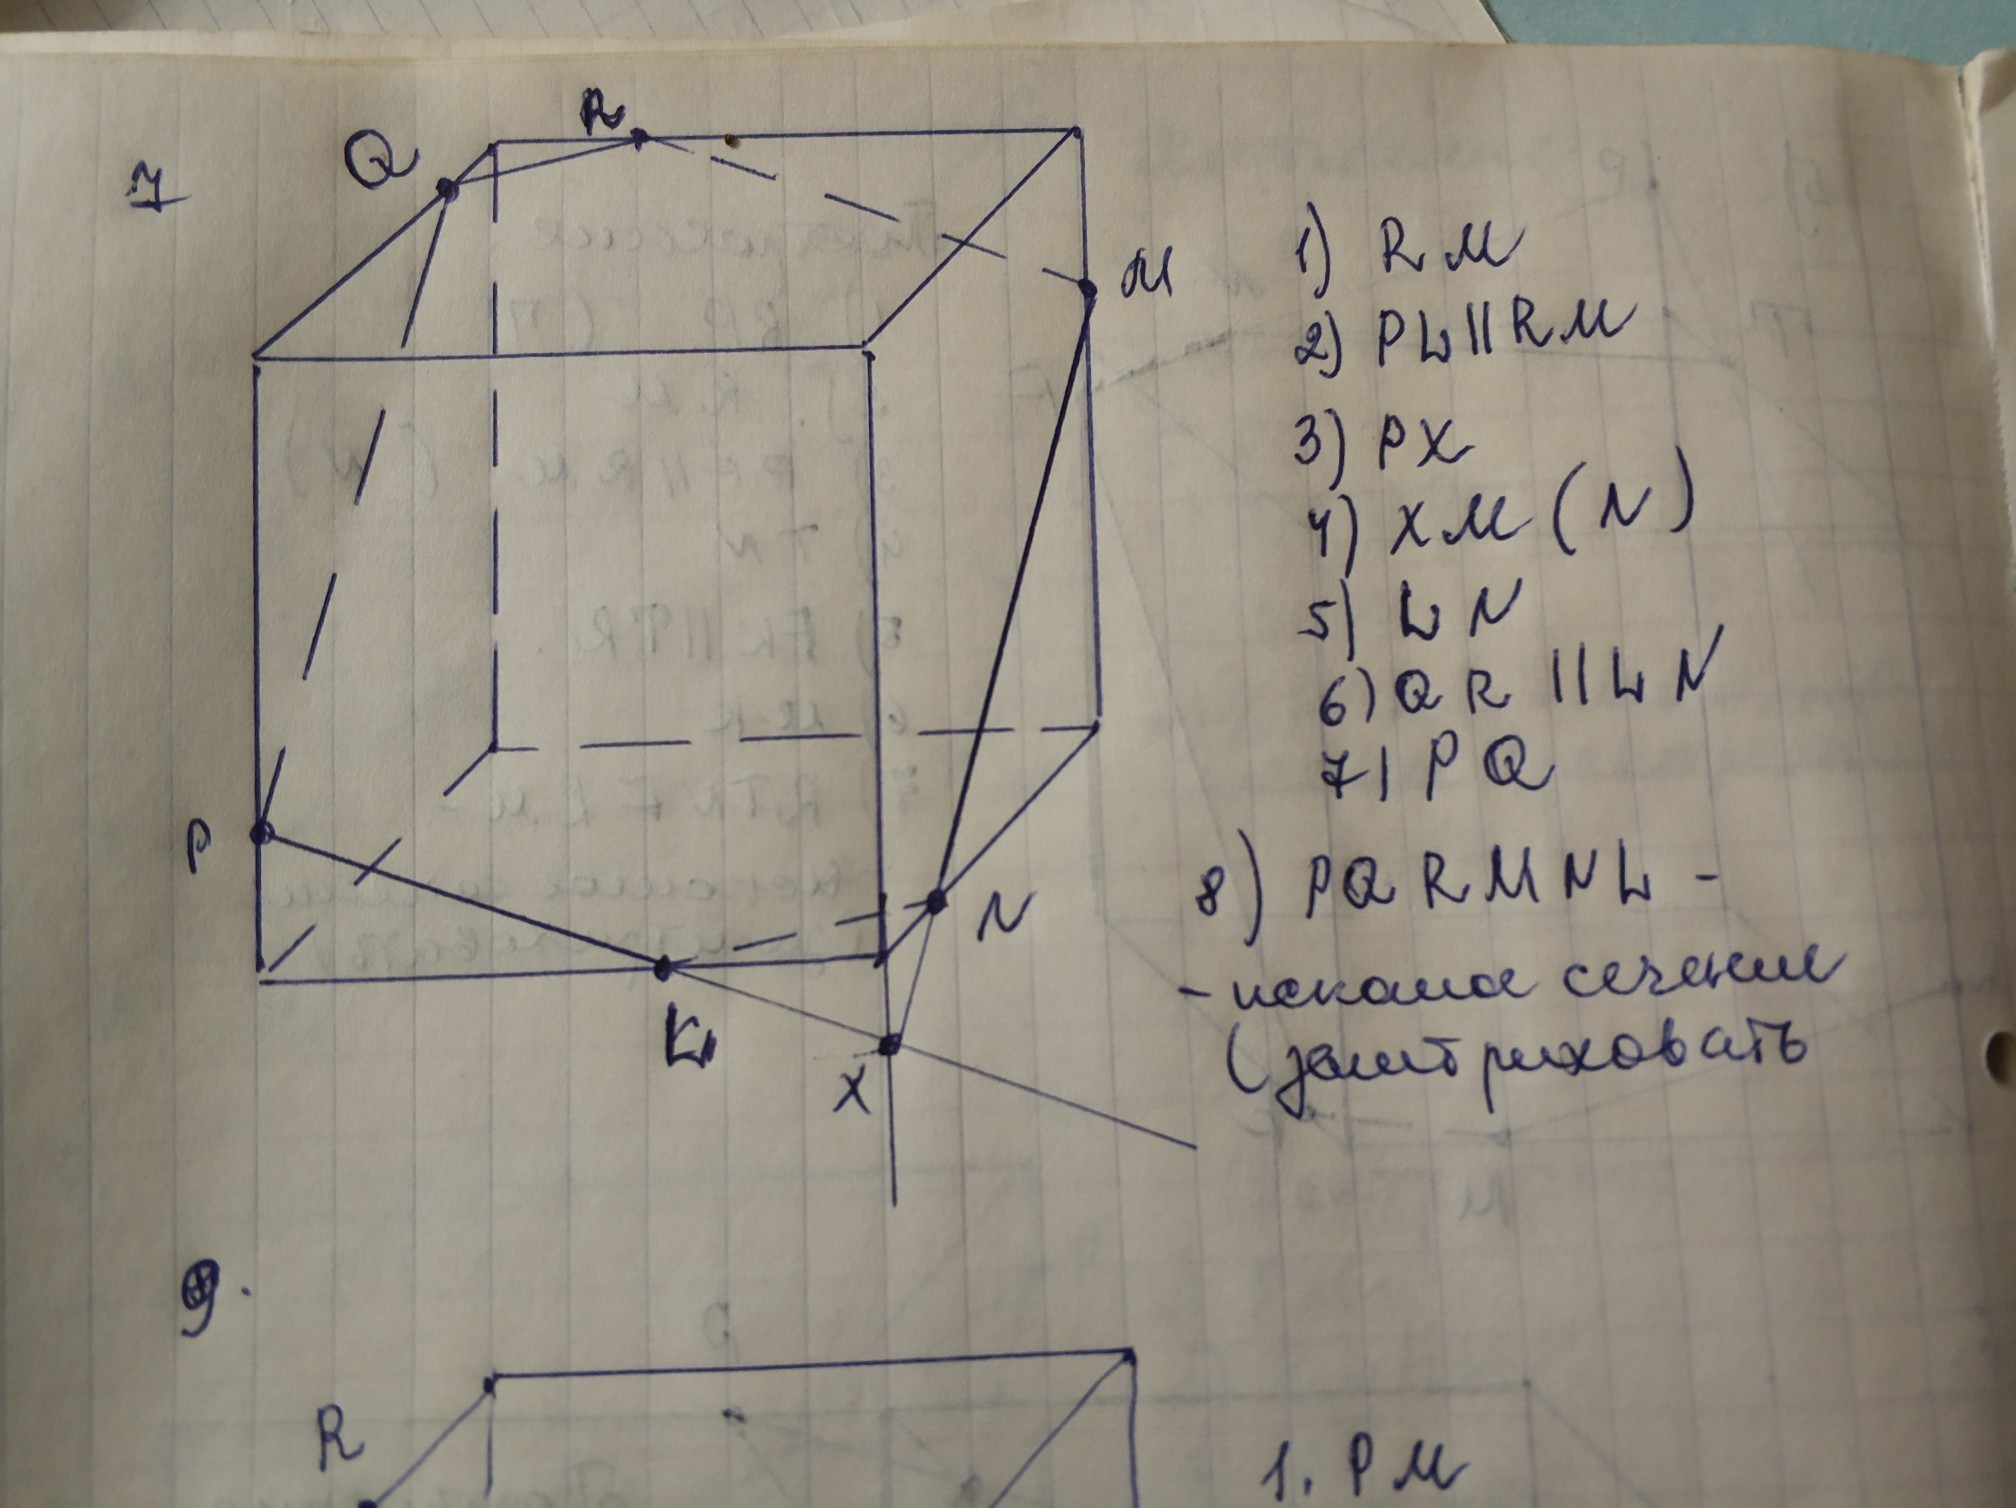 7
Q
R
M
P
N
L
X
1) RM
2) PL || RM
3) PX
4) XM (N)
5) LN
6) QR || LN
7) PQ
8) PQRMNL -
- искомое сечение
(заштриховать
9.
R
1. PM